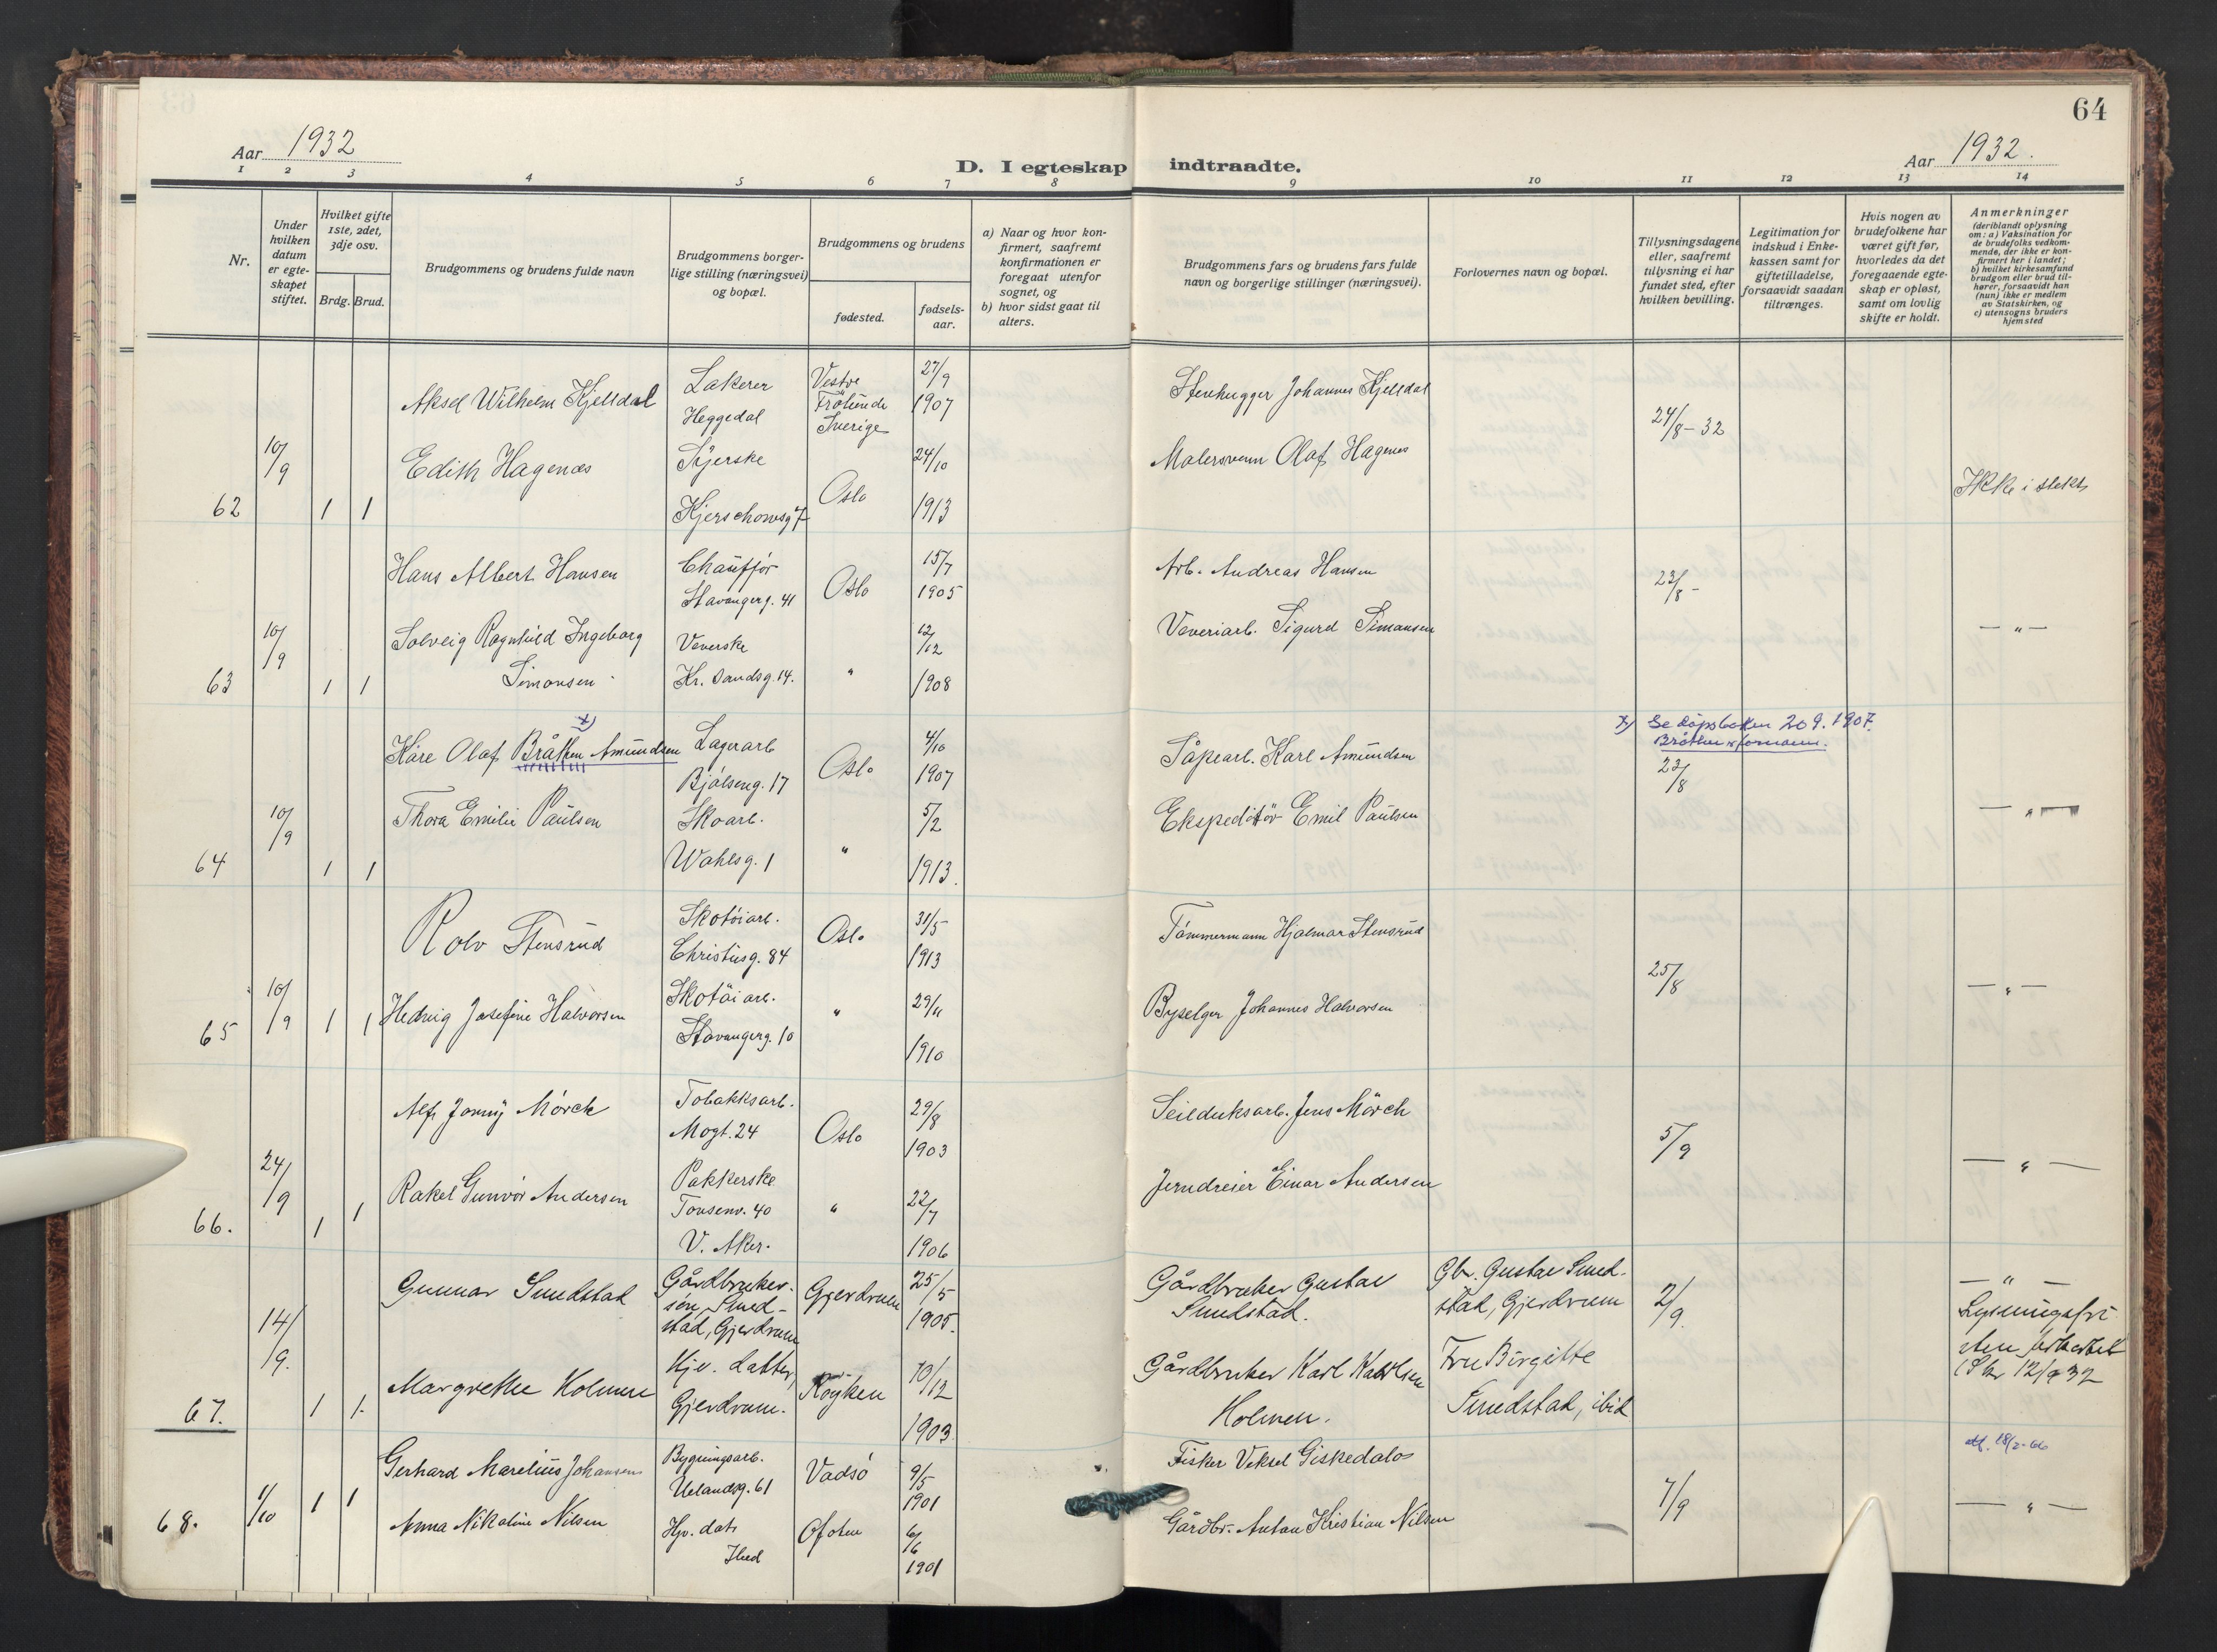 64
Aar 1932
D. I egteskap indtraadte.
Aar 1932.
1 2 3 4 5 6 7 8 9 10 11 12 13 14
Nr.
Under hvilken datum er egteskapet stiftet.
Hvilket gifte 1ste, 2det, 3dje osv.
Brdg. Brud.
Brudgommens og brudens fulde navn
Brudgommens borgerlige stilling (næringsvei) og bopæl.
Brudgommens og brudens
fødested.
fødselsaar.
a) Naar og hvor konfirmert, saafremt konfirmationen er foregaat utenfor sognet, og
b) hvor sidst gaat til alters.
Brudgommens fars og brudens fars fulde navn og borgerlige stillinger (næringsvei).
Forlovernes navn og bopæl.
Tillysningsdagene eller, saafremt tillysning ei har fundet sted, efter hvilken bevilling.
Legitimation for indskud i Enkekassen samt for giftetilladelse, forsaavidt saadan tiltrænges.
Hvis nogen av brudefolkene har været gift før, hvorledes da det foregaaende egteskap er opløst, samt om lovlig skifte er holdt.
Anmerkninger
(deriblandt oplysning om: a) Vaksination for de brudefolks vedkommende, der ikke er konfirmert her i landet;
b) hvilket kirkesamfund brudgom eller brud tilhører, forsaavidt han (hun) ikke er medlem av Statskirken, og
c) utensogns bruders hjemsted
62 10/9 1 1
Aksel Wilhelm Kjelldal
Lakerer
Heggedal
Vestre
Sverige
27/9
1907
Stenhugger Johannes Kjelldal
24/8-32
Edith Hagenæs
Syerske
Kjerschowsg 7
Oslo
24/10
1913
Malersvenn Olaf Hagenes
Ikke i slekt
63 10/9 1 1
Hans Albert Hansen
Chauffør
Stavangerg. 41
Oslo
15/7
1905
Arb. Andreas Hansen
23/8 -
Solveig Ragnhild Ingeborg
Simonsen
Veverske
Kr. sandsg. 14.
"
12/12
1908
Veveriarb. Sigurd Simonsen
— " —
64 10/9 1 1
x)
Kåre Olaf Bråthen Amundsen
Lagerarb
Bjølseng. 17
Oslo
4/10
1907
Såpearb. Karl Amundsen
x) Se dåpsboken 209. 1907.
Bråthen x fornavn.
23/8
Thora Emilie Paulsen
Skoarb.
Wahlsg. 1
"
5/2
1913.
Ekspeditør Emil Paulsen
— " —
65 10/9 1 1
Rolv Stensrud
Skotøiarb.
Christiesg. 84
Oslo
31/5
1913
Tømmermann Hjalmar Stensrud
25/8
Hedvig Josefine Halvorsen
Skotøiarb.
Stavangerg. 10
"
29/11
1910
Byselger Johannes Halvorsen
— " —
66. 24/9 1 1
Alf Jonny Mörch
Tobakksarb.
Mogt. 24
Oslo
29/8
1903
Seilduksarb. Jens Mörch
5/9
Rakel Gunvor Andersen
Pakkerske
Tonsenv. 40
V. Aker.
"
22/7
1906
Jerndreier Einar Andersen
— " —
67. 14/9. 1 1.
Gunnar Smedstad
Gårdbruker-
søn, Smed-
stad, Gjerdrum
Gjerdrum
25/5
1905.
Gårdbruker Gustav
Smedstad.
Gbr. Gustav Smed-
stad, Gjerdrum
2/9.
— " —
Lysningsfri-
sten forkortet
(Skr 12/9 32
Margrethe Holmen
Hjv. datter,
Gjerdrum.
Røyken
10/12
1903
Gårdbruker Karl Karlsen
Holmen.
Fru Birgitte
Smedstad, ibid
68. 1/10 1 1
Gerhard Marelius Johansen
Bygningsarb.
Uelandsg. 61
Vadsø
9/5
1901
Fisker Veksel Giskedalo
att. 18/2-66
7/9
Anna Nikoline Nilsen
Hjv. dat
Ibid
Ofoten
6/6
1901
Gårdbr. Anton Kristian Nilsen
— " —